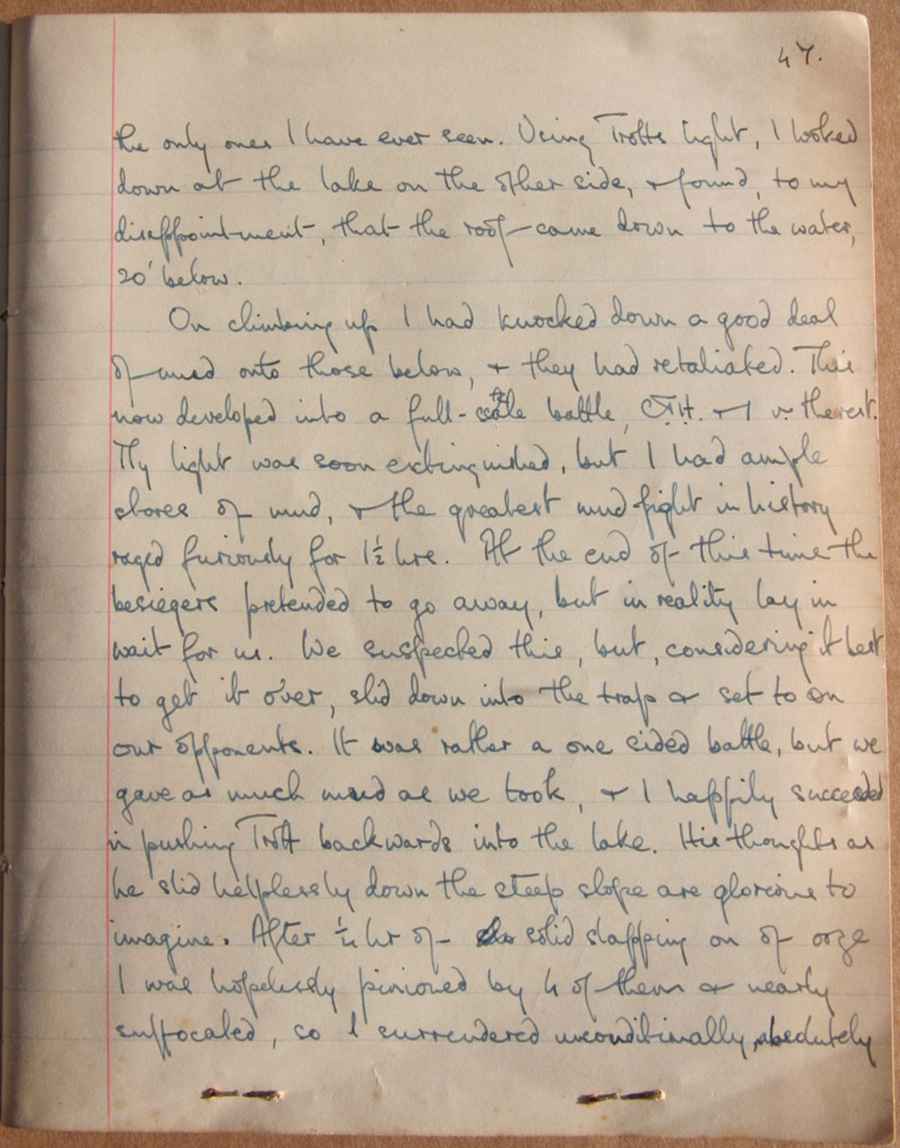 47.
the only ones I have ever seen. Using Trott's light, I looked
down at the lake on the other side, & found, to my
disappointment, that the roof came down to the water,
20' below.
On climbing up I had knocked down a good deal
of mud onto those below, & they had retaliated. This
now developed into a full-scale battle, & I v. the rest.
My light was soon extinguished, but I had ample
stores of mud, & the greatest mud fight in history
raged furiously for 1½ hrs. At the end of this time the
besiegers pretended to go away, but in reality lay in
wait for us. We suspected this, but, considering it best
to get it over, slid down into the trap & set to on
our opponents. It was rather a one sided battle, but we
gave as much mud as we took, & I happily succeeded
in pushing Trott backwards into the lake. His thoughts as
he slid helplessly down the steep slope are glorious to
imagine. After ¼ hr of solid slapping on of ooze
I was hopelessly pinioned by 4 of them & nearly
suffocated, so I surrendered unconditionally, absolutely